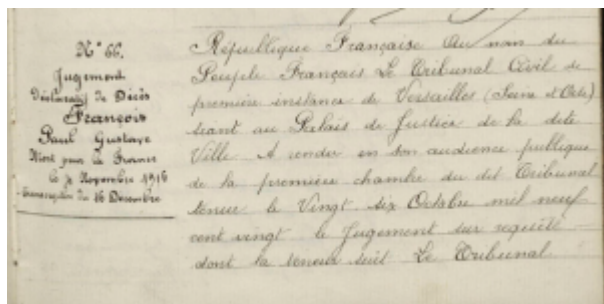 N° 66.
Jugement
déclaratif de Décès
François
Paul Gustave
Mort pour la France
le 7 Novembre 1916
Transcription du 16 Décembre
République Française Au nom du
Peuple Français Le Tribunal Civil de
première instance de Versailles (Seine et Oise)
séant au Palais de Justice de la dite
Ville A rendu en son audience publique
de la première chambre du dit Tribunal
tenue le Vingt six Octobre mil neuf
cent vingt le Jugement sur requête
dont la teneur suit Le Tribunal